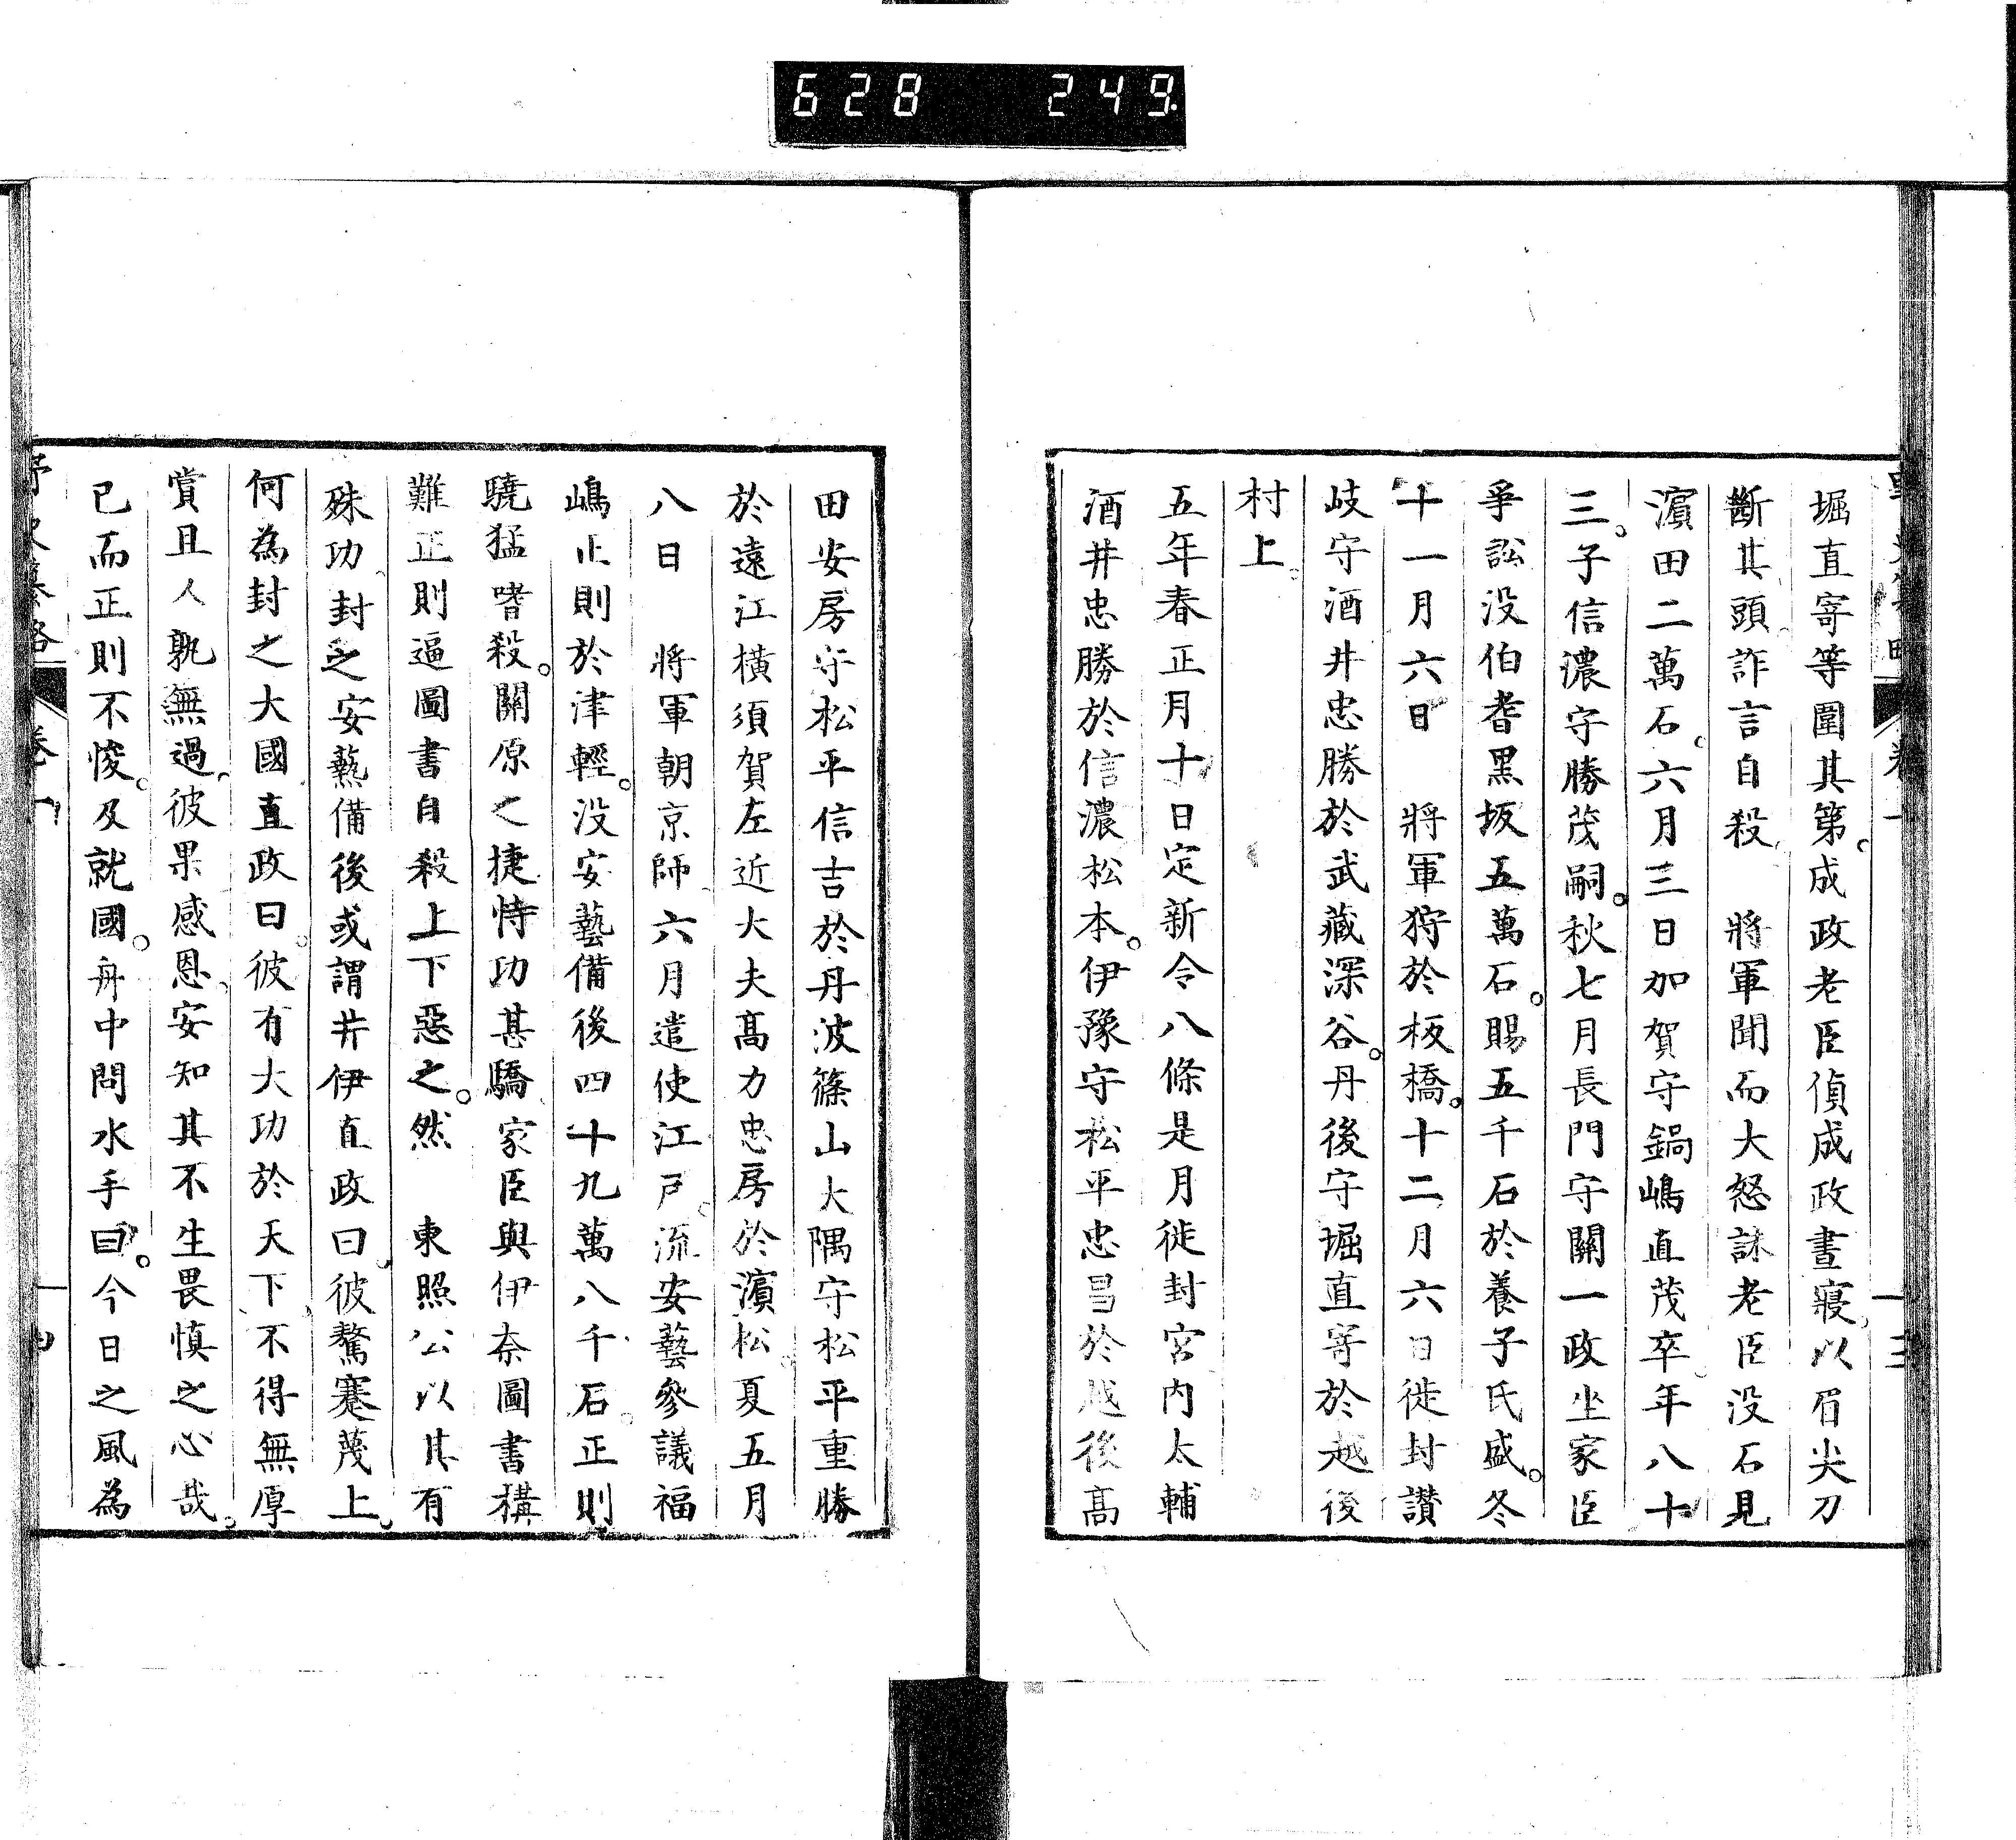 628 249
堀直寄等圍其第。成政老臣偵成政晝寢以眉尖刀
斷其頭詐言自殺　將軍聞而大怒誅老臣没石見
濵田二萬石。六月三日加賀守鍋嶋直茂卒年八十
三。子信濃守勝茂嗣。秋七月長門守關一政坐家臣
爭訟没伯耆黑坂五萬石。賜五千石於養子氏盛。冬
十一月六日　將軍狩於板橋。十二月六日徙封讚
岐守酒井忠勝於武藏深谷。丹後守堀直寄於越後
村上。
五年春正月十日定新令八條是月徙封宮内太輔
酒井忠勝於信濃松本。伊豫守松平忠昌於越後髙
田安房守松平信吉於丹波篠山大隅守松平重勝
於遠江橫須賀左近大夫髙力忠房於濵松。夏五月
八日　將軍朝京師。六月遣使江戸。流安藝參議福
嶋正則於津輕。没安藝備後四十九萬八千石。正則
驍猛嗜殺。關原之捷恃功甚驕家臣與伊奈圖書構
難正則逼圖書自殺上下惡之。然　東照公以其有
殊功。封之安藝備後或謂井伊直政曰。彼驁蹇蔑上。
何為封之大國直政曰。彼有大功於天下。不得無厚
賞且人孰無過。彼果感恩。安知其不生畏慎之心哉。
已而正則不悛。及就國。舟中問水手曰。今日之風為
卷一